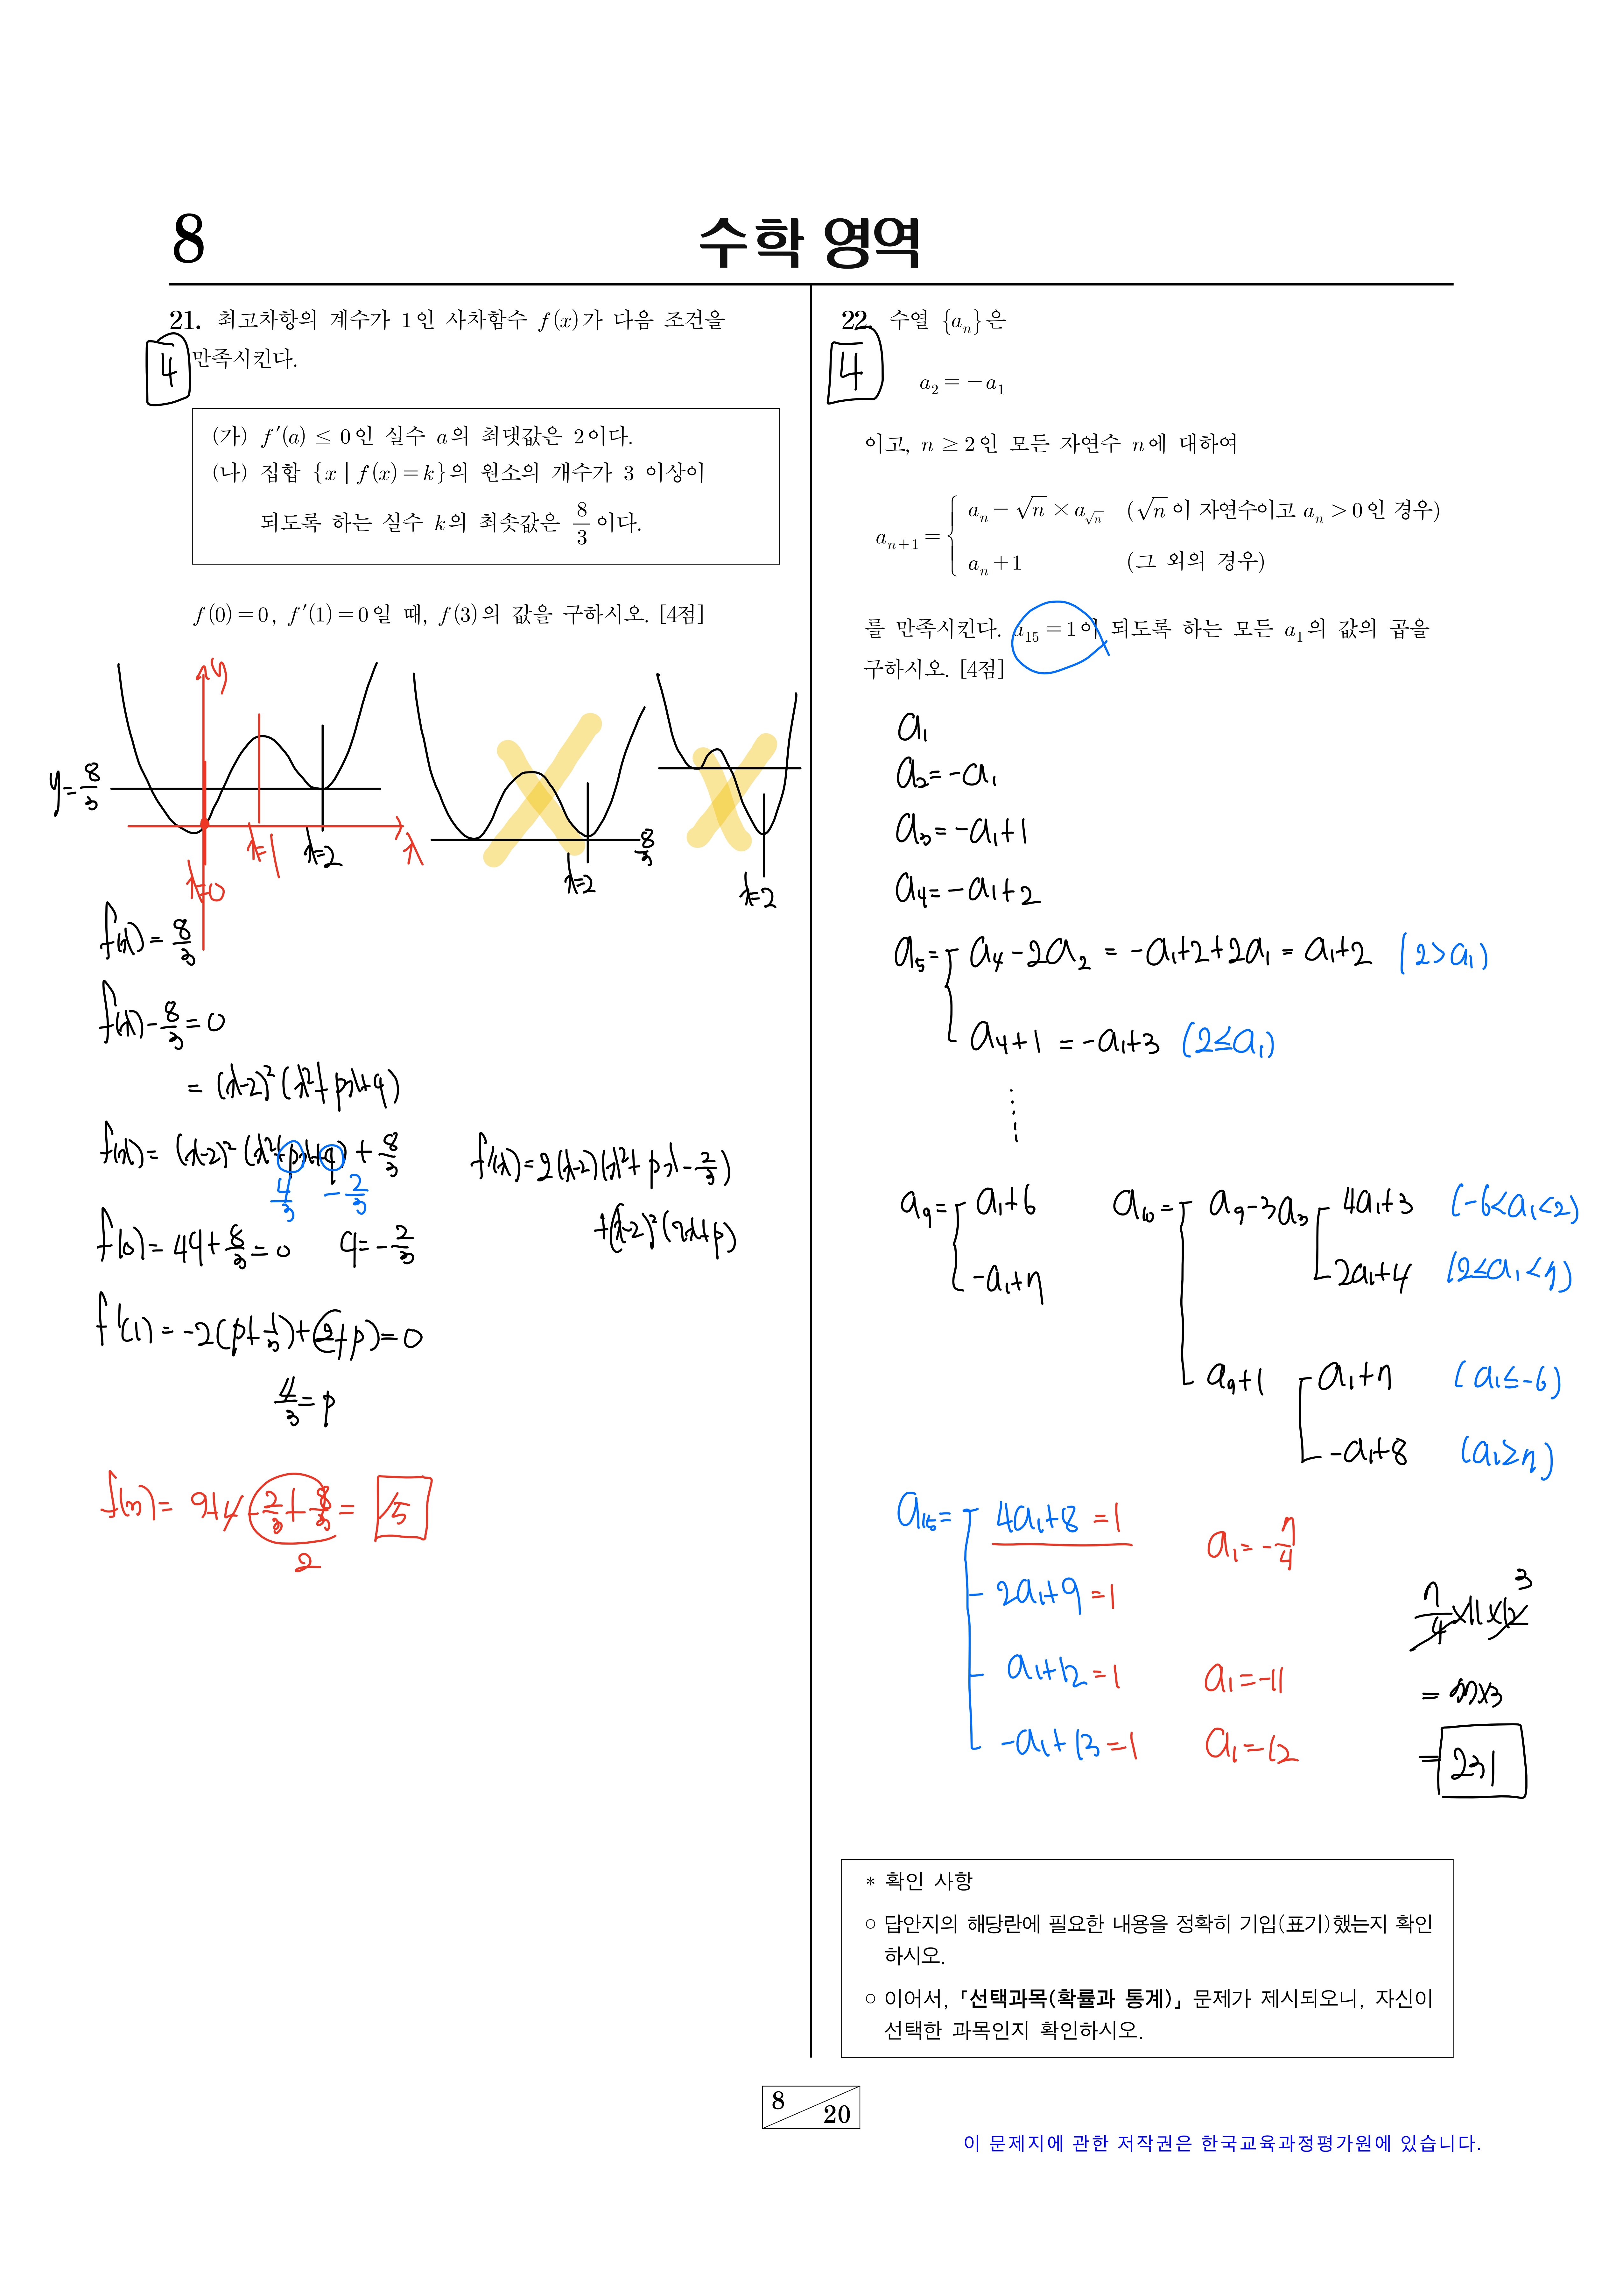 8
수학 영역
21. 최고차항의 계수가 1인 사차함수 f(x)가 다음 조건을
만족시킨다.
4
(가) f′(a) ≤ 0인 실수 a의 최댓값은 2이다.
(나) 집합 {x | f(x)=k}의 원소의 개수가 3 이상이
되도록 하는 실수 k의 최솟값은 8/3이다.
f(0)=0, f′(1)=0일 때, f(3)의 값을 구하시오. [4점]
y
y=8/3
x=1
x=2
x
x=0
8/3
x=2
x=2
f(x)=8/3
f(x)-8/3=0
=(x-2)²(x²+px+q)
f(x)=(x-2)²(x²+px+q)+8/3
4/3 -2/3
f'(x)=2(x-2)(x²+px-2/3)
+(x-2)²(2x+p)
f(0)=4q+8/3=0 q=-2/3
f'(1)=-2(p+1/3)+(2+p)=0
4/3=p
f(3)=9+4-2/3+8/3=15
2
22. 수열 {aₙ}은
4
a₂=-a₁
이고, n ≥ 2인 모든 자연수 n에 대하여
aₙ₊₁ = { aₙ-√n×a_√n (√n이 자연수이고 aₙ>0인 경우)
aₙ+1 (그 외의 경우)
를 만족시킨다. a₁₅=1이 되도록 하는 모든 a₁의 값의 곱을
구하시오. [4점]
a₁
a₂=-a₁
a₃=-a₁+1
a₄=-a₁+2
a₅= a₄-2a₂ = -a₁+2+2a₁ = a₁+2 (2>a₁)
a₄+1 = -a₁+3 (2≤a₁)
a₉= a₁+6
-a₁+7
a₁₀= a₉-3a₃ 4a₁+3 (-6<a₁<2)
2a₁+4 (2≤a₁<7)
a₉+1 a₁+7 (a₁≤-6)
-a₁+8 (a₁≥7)
a₁₅= 4a₁+8=1 a₁=-7/4
2a₁+9=1
a₁+12=1 a₁=-11
-a₁+13=1 a₁=12
7/4×11×12
3
=77×3
=231
* 확인 사항
○ 답안지의 해당란에 필요한 내용을 정확히 기입(표기)했는지 확인
하시오.
○ 이어서, 「선택과목(확률과 통계)」 문제가 제시되오니, 자신이
선택한 과목인지 확인하시오.
8
20
이 문제지에 관한 저작권은 한국교육과정평가원에 있습니다.